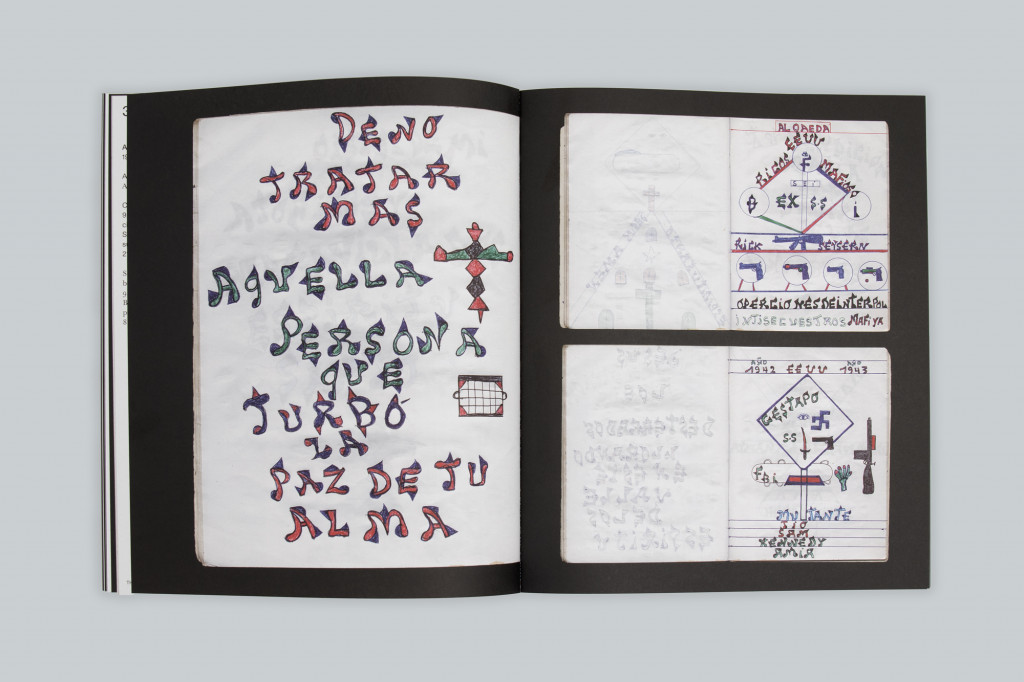 DE NO
TRATAR
MAS
AQUELLA
PERSONA
QUE
TURBÓ
LA
PAZ DE TU
ALMA
AL QAEDA
EEUU
RICOS
MAFIMO
F
P
EX S-S
i
RICK
OPERCIOMES DE INTERPOL
INTISECUESTROS MAFIYA
AÑO AÑO
1942 EEUU 1943
GESTAPO
S-S
FBI
MUTANTE
TIO
SAM
KENNEDY
AMIA